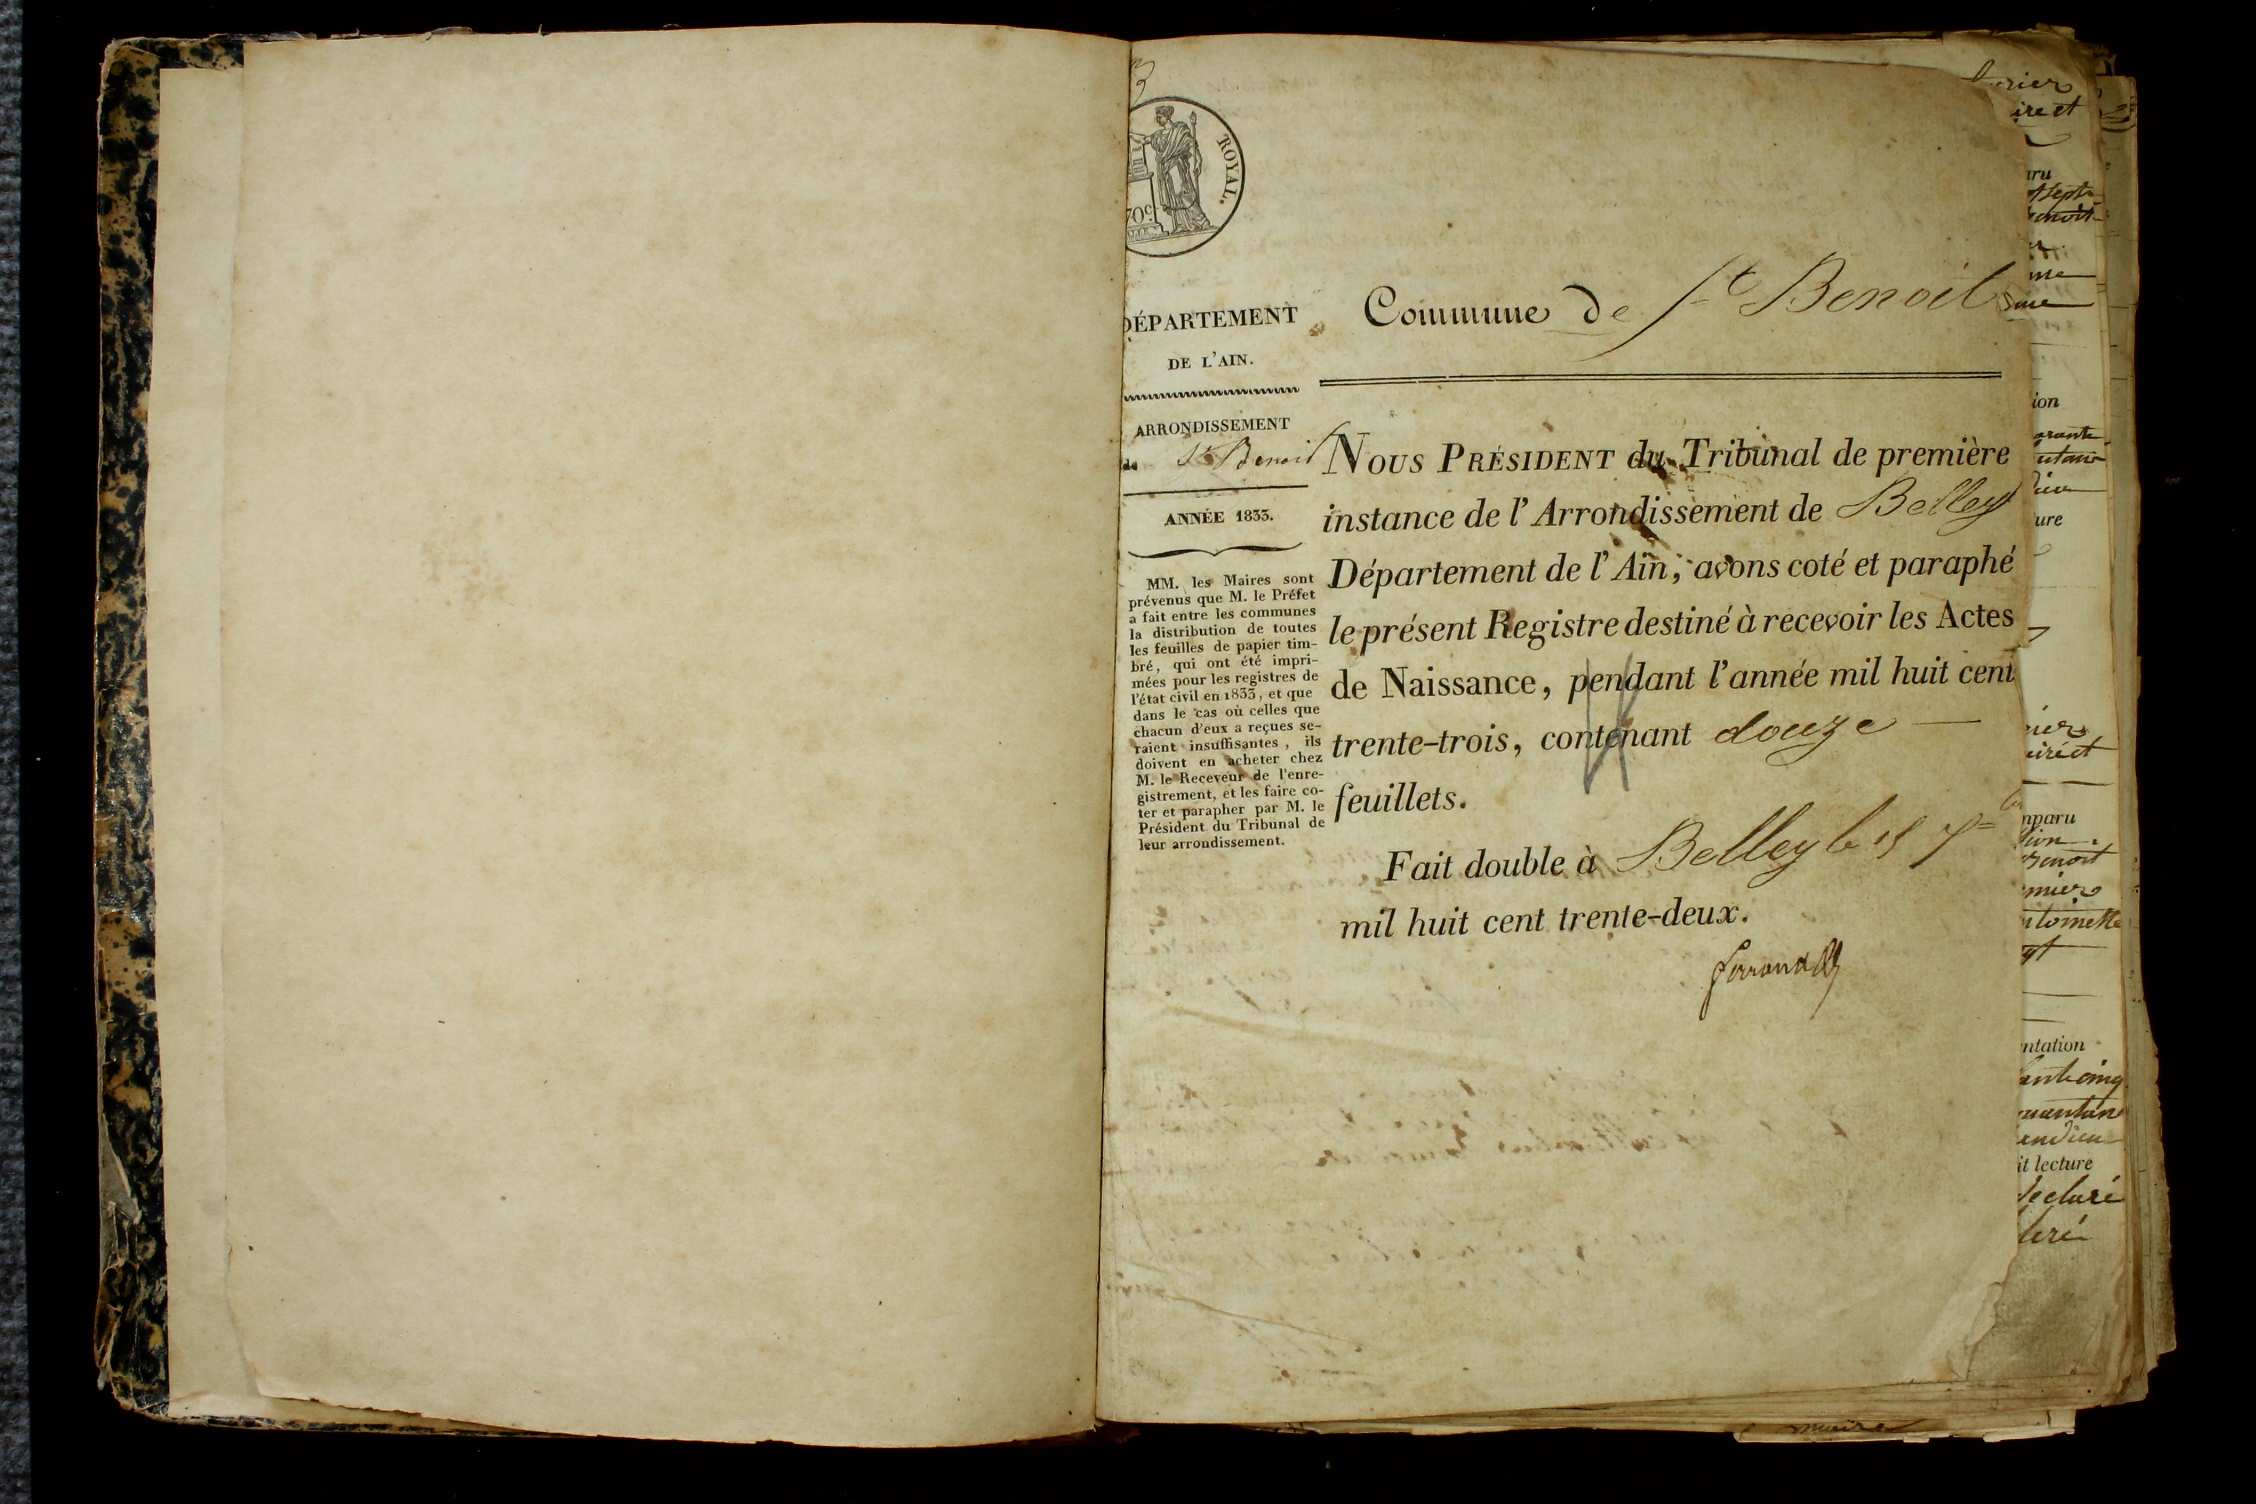 3
ROYAL.
70c
DÉPARTEMENT
DE L'AIN.
ARRONDISSEMENT
de St Benoit
ANNÉE 1833.
MM. les Maires sont
prévenus que M. le Préfet
a fait entre les communes
la distribution de toutes
les feuilles de papier tim-
bré, qui ont été impri-
mées pour les registres de
l'état civil en 1833, et que
dans le cas où celles que
chacun d'eux a reçues se-
raient insuffisantes, ils
doivent en acheter chez
M. le Receveur de l'enre-
gistrement, et les faire co-
ter et parapher par M. le
Président du Tribunal de
leur arrondissement.
Commune de St Benoit
NOUS PRÉSIDENT du Tribunal de première
instance de l'Arrondissement de Belley
Département de l'Ain, avons coté et paraphé
le présent Registre destiné à recevoir les Actes
de Naissance, pendant l'année mil huit cent
trente-trois, contenant douze
feuillets.
Fait double à Belley le 15
mil huit cent trente-deux.
ire et
aru
ion
ure
mparu
ntation
it lecture
declaré
maire